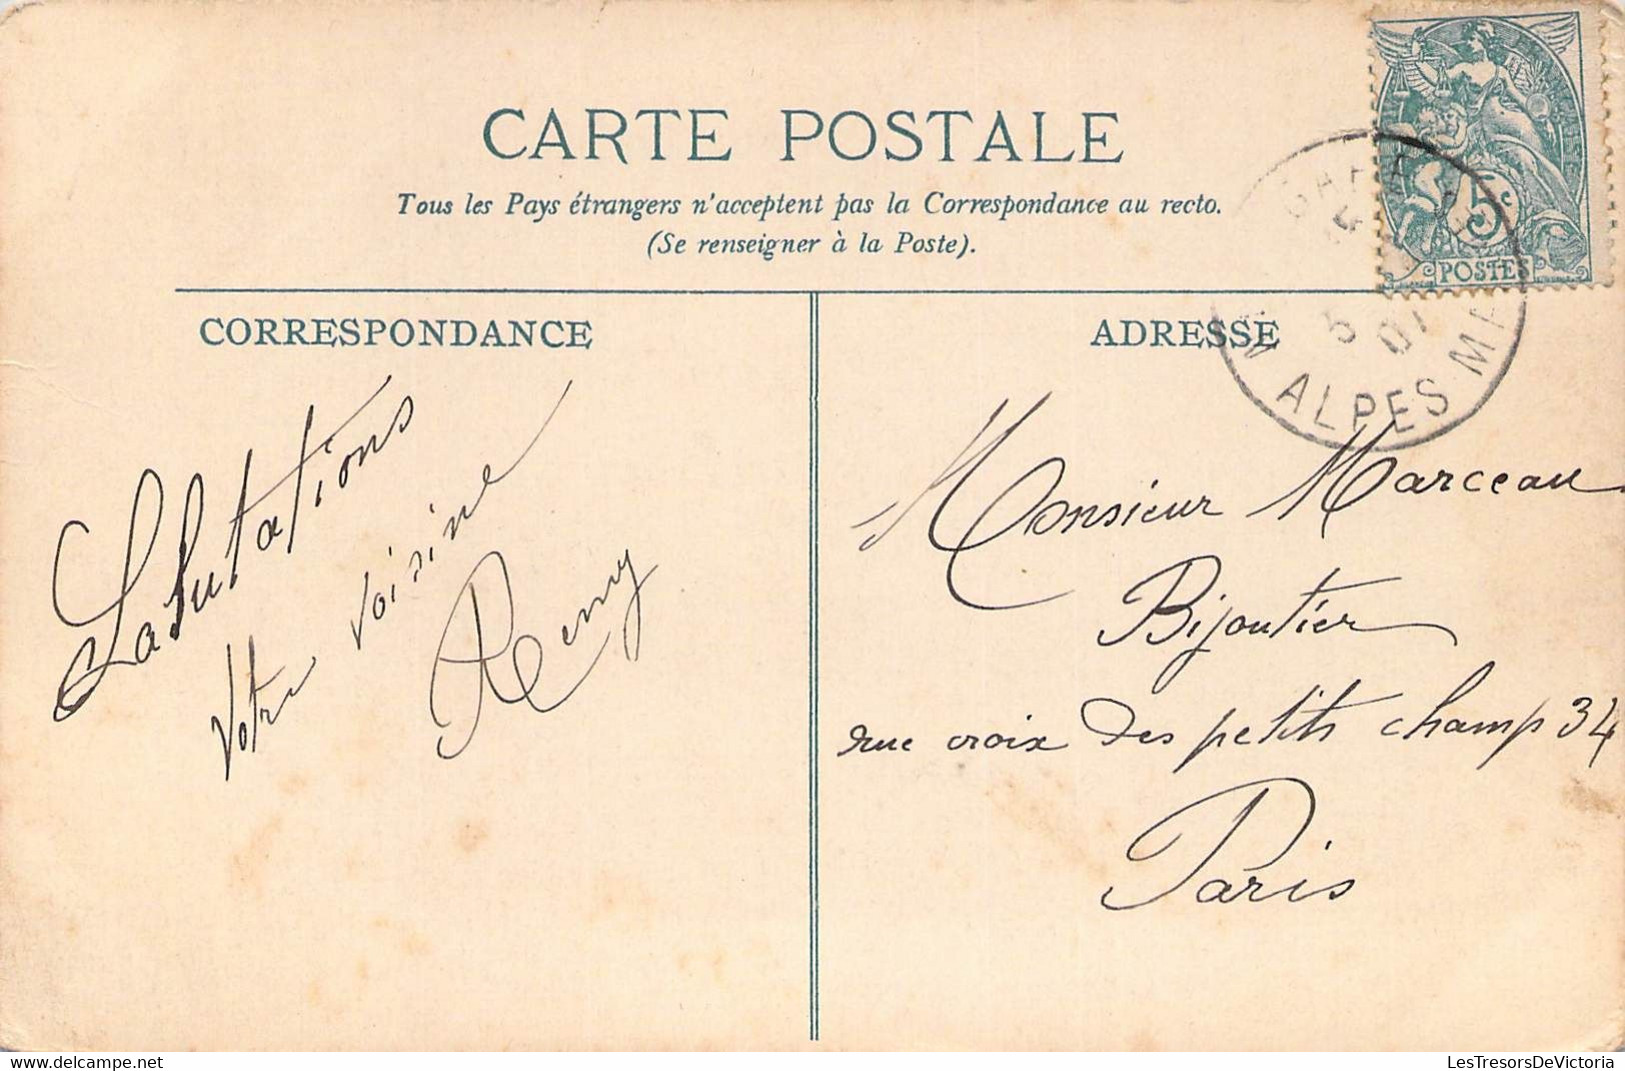 CARTE POSTALE
Tous les Pays étrangers n'acceptent pas la Correspondance au recto.
(Se renseigner à la Poste).
5c
POSTES
5 07
ALPES MM
CORRESPONDANCE
Salutations
Votre voisine
Remy
ADRESSE
Monsieur Marceau
Bijoutier
rue croix des petits champ 34
Paris
LesTresorsDeVictoria